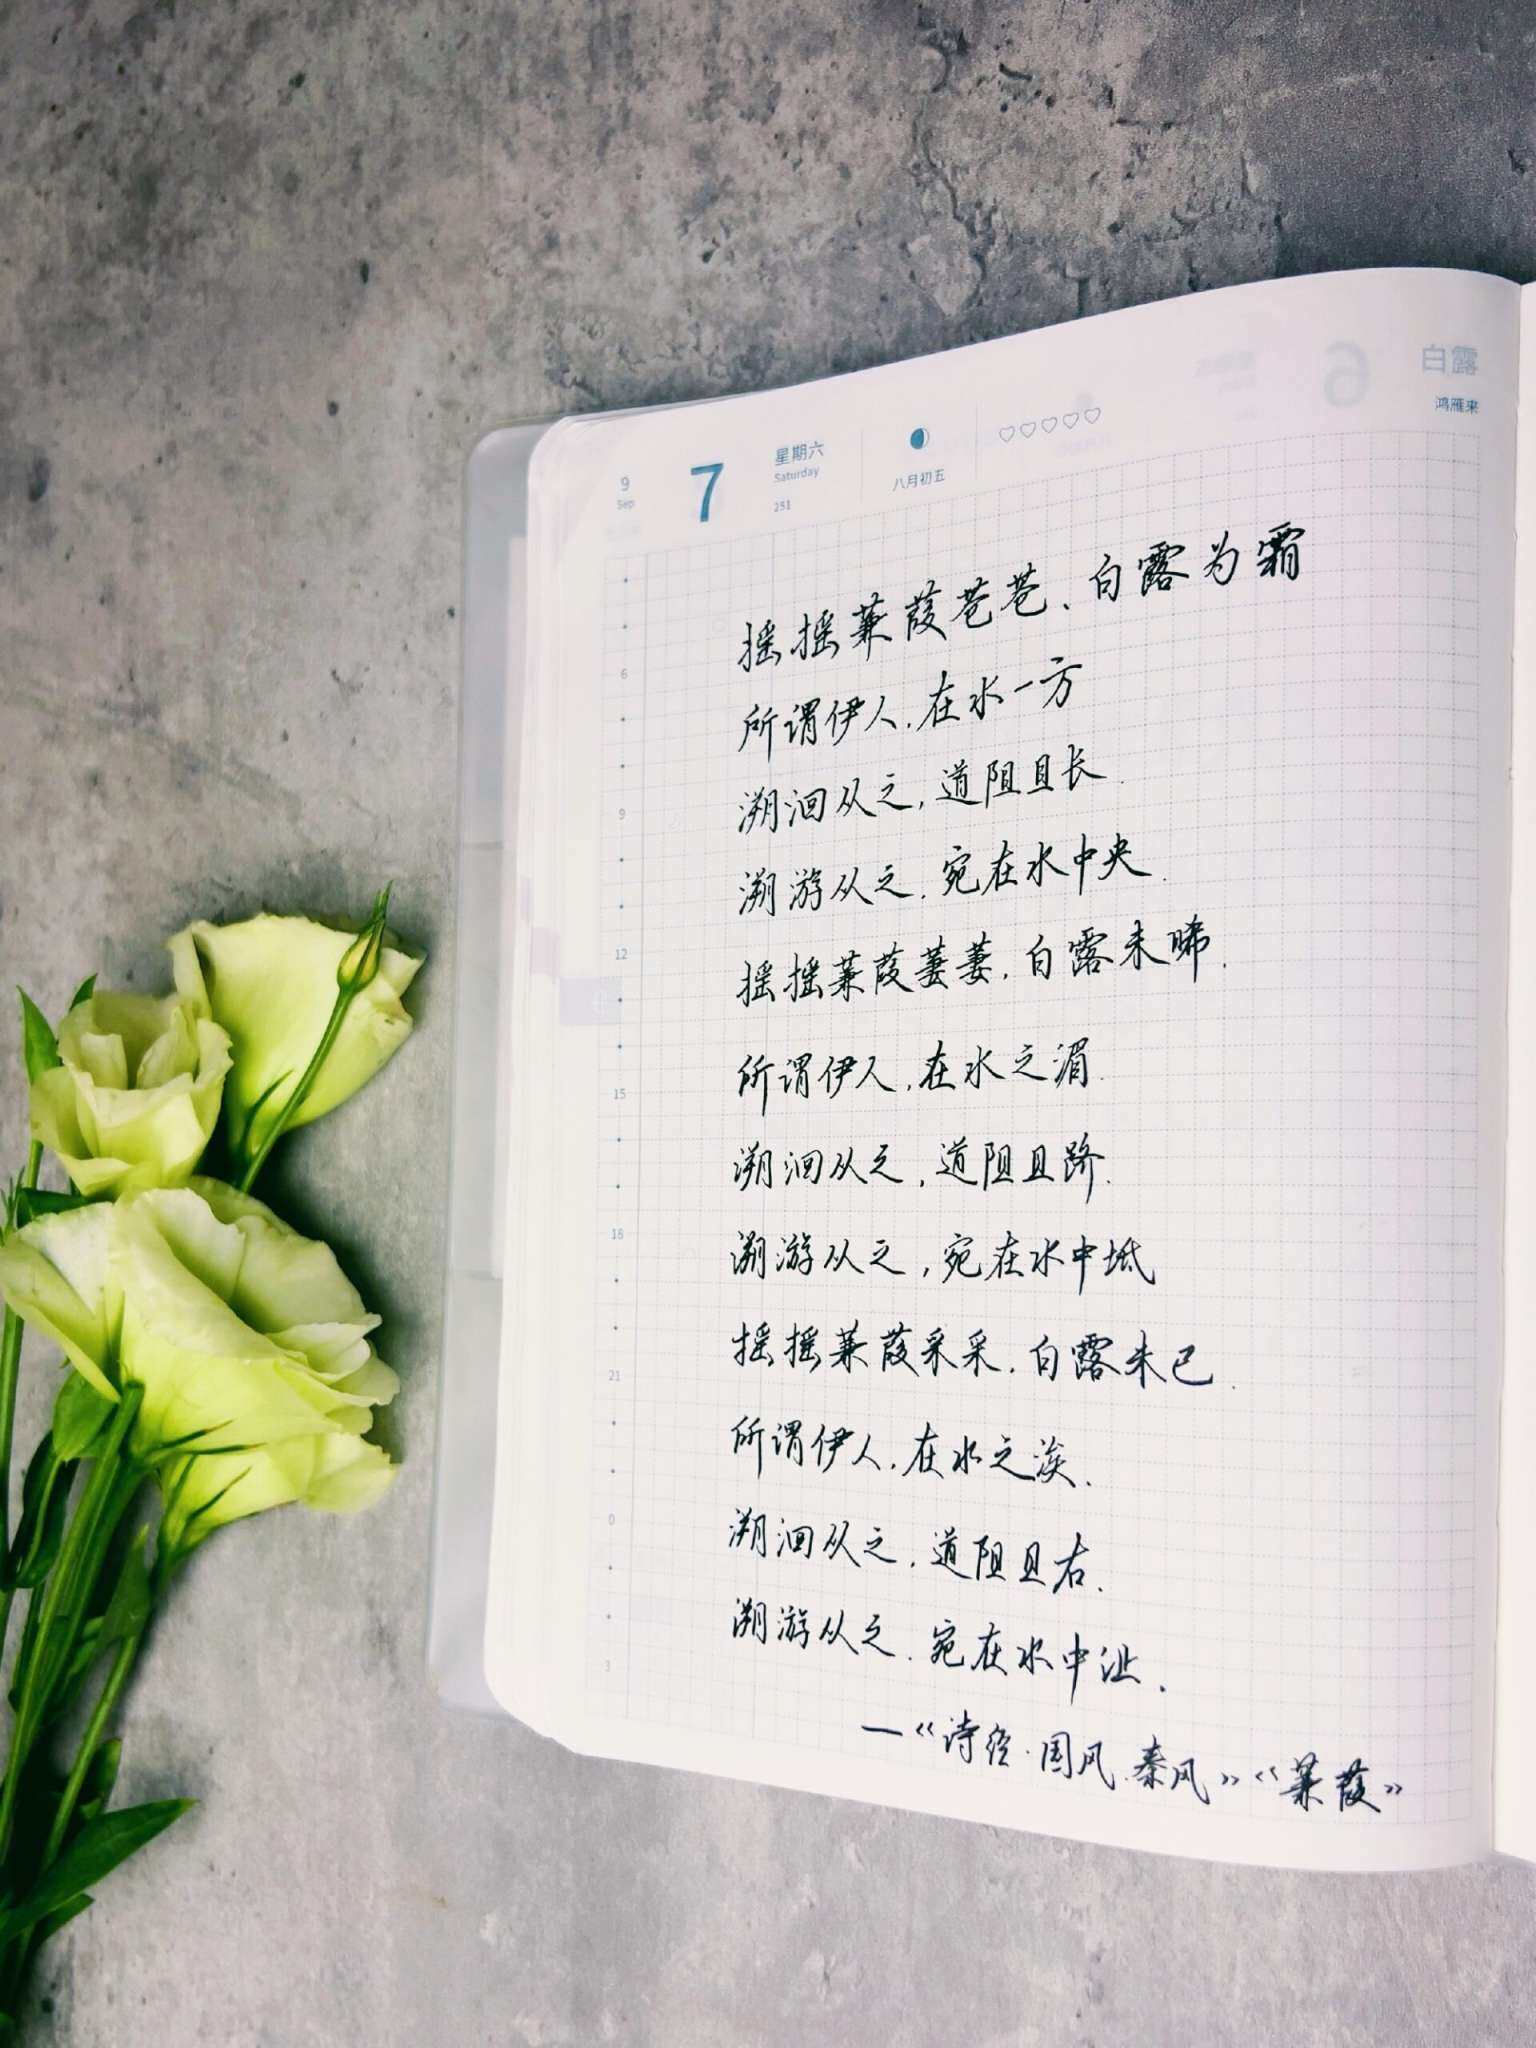 白露
鸿雁来
9
Sep
7
星期六
Saturday
251
八月初五
摇摇蒹葭苍苍、白露为霜
6
所谓伊人,在水一方
溯洄从之,道阻且长.
9
溯游从之.宛在水中央.
摇摇蒹葭萋萋.白露未晞.
12
所谓伊人,在水之湄.
15
溯洄从之,道阻且跻.
18
溯游从之,宛在水中坻
摇摇蒹葭采采.白露未已.
21
所谓伊人.在水之涘.
0
溯洄从之.道阻且右.
溯游从之.宛在水中沚.
3
—《诗经·国风.秦风》《蒹葭》